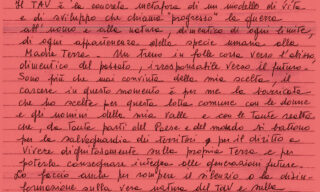 Il TAV è la concreta metafora di un modello di vita
e di sviluppo che chiama "progresso" la guerra
all'uomo e alla natura, dimentico di ogni limite,
di ogni appartenenza della specie umana alla
Madre Terra. Un treno in folle corsa verso l'abisso,
dimentico del passato, irresponsabile verso il futuro.
Sono più che mai convinta della mia scelta, il
carcere in questo momento è per me la barricata
che ho scelto per questa lotta comune con le donne
e gli uomini della mia valle e con le tante realtà
che da tante parti del Paese e del mondo si battono
per la salvaguardia dei territori e per il diritto a
vivere dignitosamente sulla propria terra e per
poterla consegnare integra alle generazioni future.
Lo faccio anche per rompere il silenzio o la disin-
formazione sulla vera natura del TAV e sulla